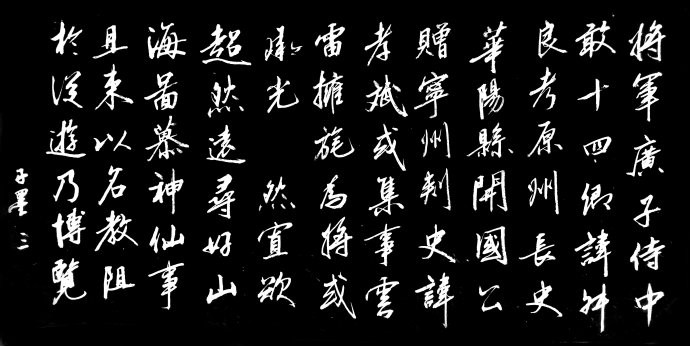 將軍廣子侍中
敢十四卿諱
良考原州長史
華陽縣開國公
贈寧州刺史諱
孝斌或集事雲
雷擁旄為將或
光 然宣欲
超然遠尋好山
海圖慕神仙事
且束以名教阻
於從遊乃博覽
子墨 三